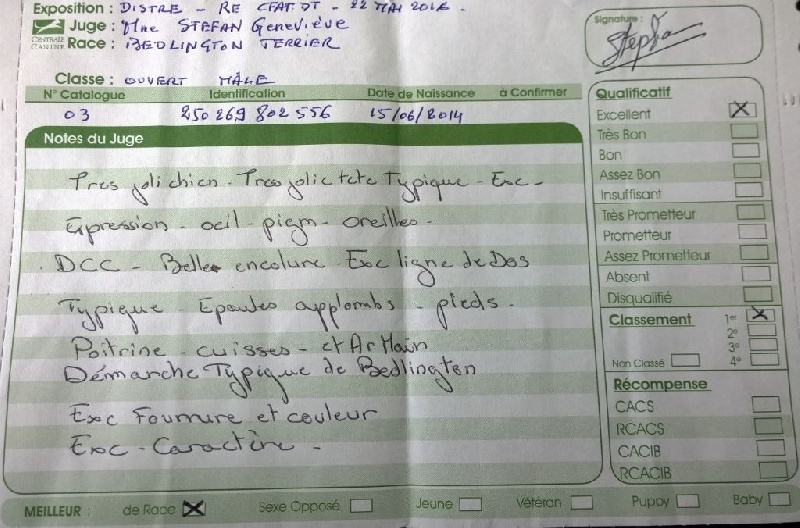 Exposition : DISTRE - RE CFABTDT - 22 MAI 2016
Juge : Mme STEFAN Geneviève
CENTRALE CANINE
Race : BEDLINGTON TERRIER
Signature :
Classe : OUVERT MALE
N° Catalogue Identification Date de Naissance à Confirmer
03 250 269 802 556 15/06/2014
Notes du Juge
Tres joli chien - Tres jolie tete Typique - Exc -
Expression - oeil - pigm - oreilles -
DCC - Belle encolure Exc ligne de Dos
Typique - Epaules applombs - pieds -
Poitrine - cuisses - et Ar Main
Démarche Typique de Bedlington
Exc Fourrure et couleur
Exc - Caractère -
Qualificatif
Excellent X
Très Bon
Bon
Assez Bon
Insuffisant
Très Prometteur
Prometteur
Assez Prometteur
Absent
Disqualifié
Classement 1er X
2e
3e
Non Classé 4e
Récompense
CACS
RCACS
CACIB
RCACIB
MEILLEUR : de Race X Sexe Opposé Jeune Vétéran Puppy Baby